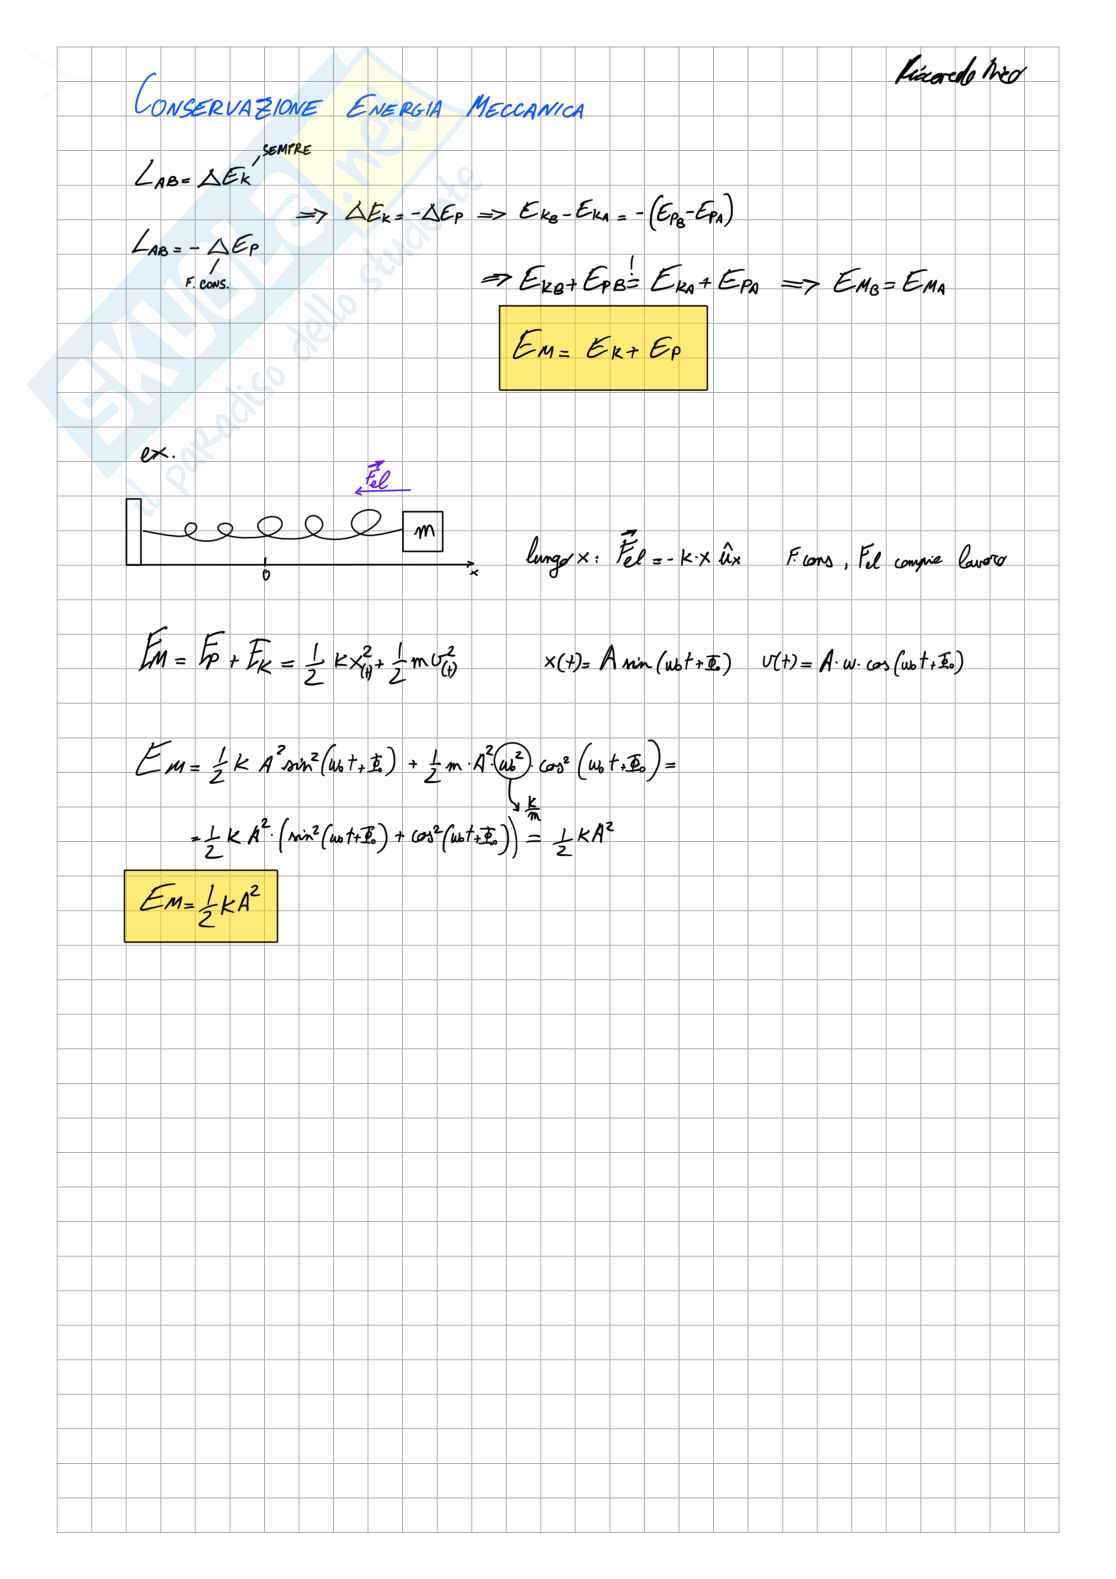 Riccardo Nico
CONSERVAZIONE ENERGIA MECCANICA
SEMPRE
L_AB = ΔE_K
⇒ ΔE_K = -ΔE_P ⇒ E_KB - E_KA = -(E_PB - E_PA)
L_AB = - ΔE_P
F. CONS.
⇒ E_KB + E_PB =! E_KA + E_PA ⇒ E_MB = E_MA
E_M = E_K + E_P
SKUOLA.net
il paradiso dello studente
ex.
F⃗el
m
0 x
lungo x: F⃗el = -k·x û_x F. cons, Fel compie lavoro
E_M = E_P + E_K = 1/2 kx²(t) + 1/2 mv²(t) x(t) = A sin(ω₀t+Φ₀) v(t) = A·ω·cos(ω₀t+Φ₀)
E_M = 1/2 k A² sin²(ω₀t+Φ₀) + 1/2 m·A²·ω₀²·cos²(ω₀t+Φ₀) =
k/m
= 1/2 k A²·(sin²(ω₀t+Φ₀) + cos²(ω₀t+Φ₀)) = 1/2 kA²
E_M = 1/2 kA²